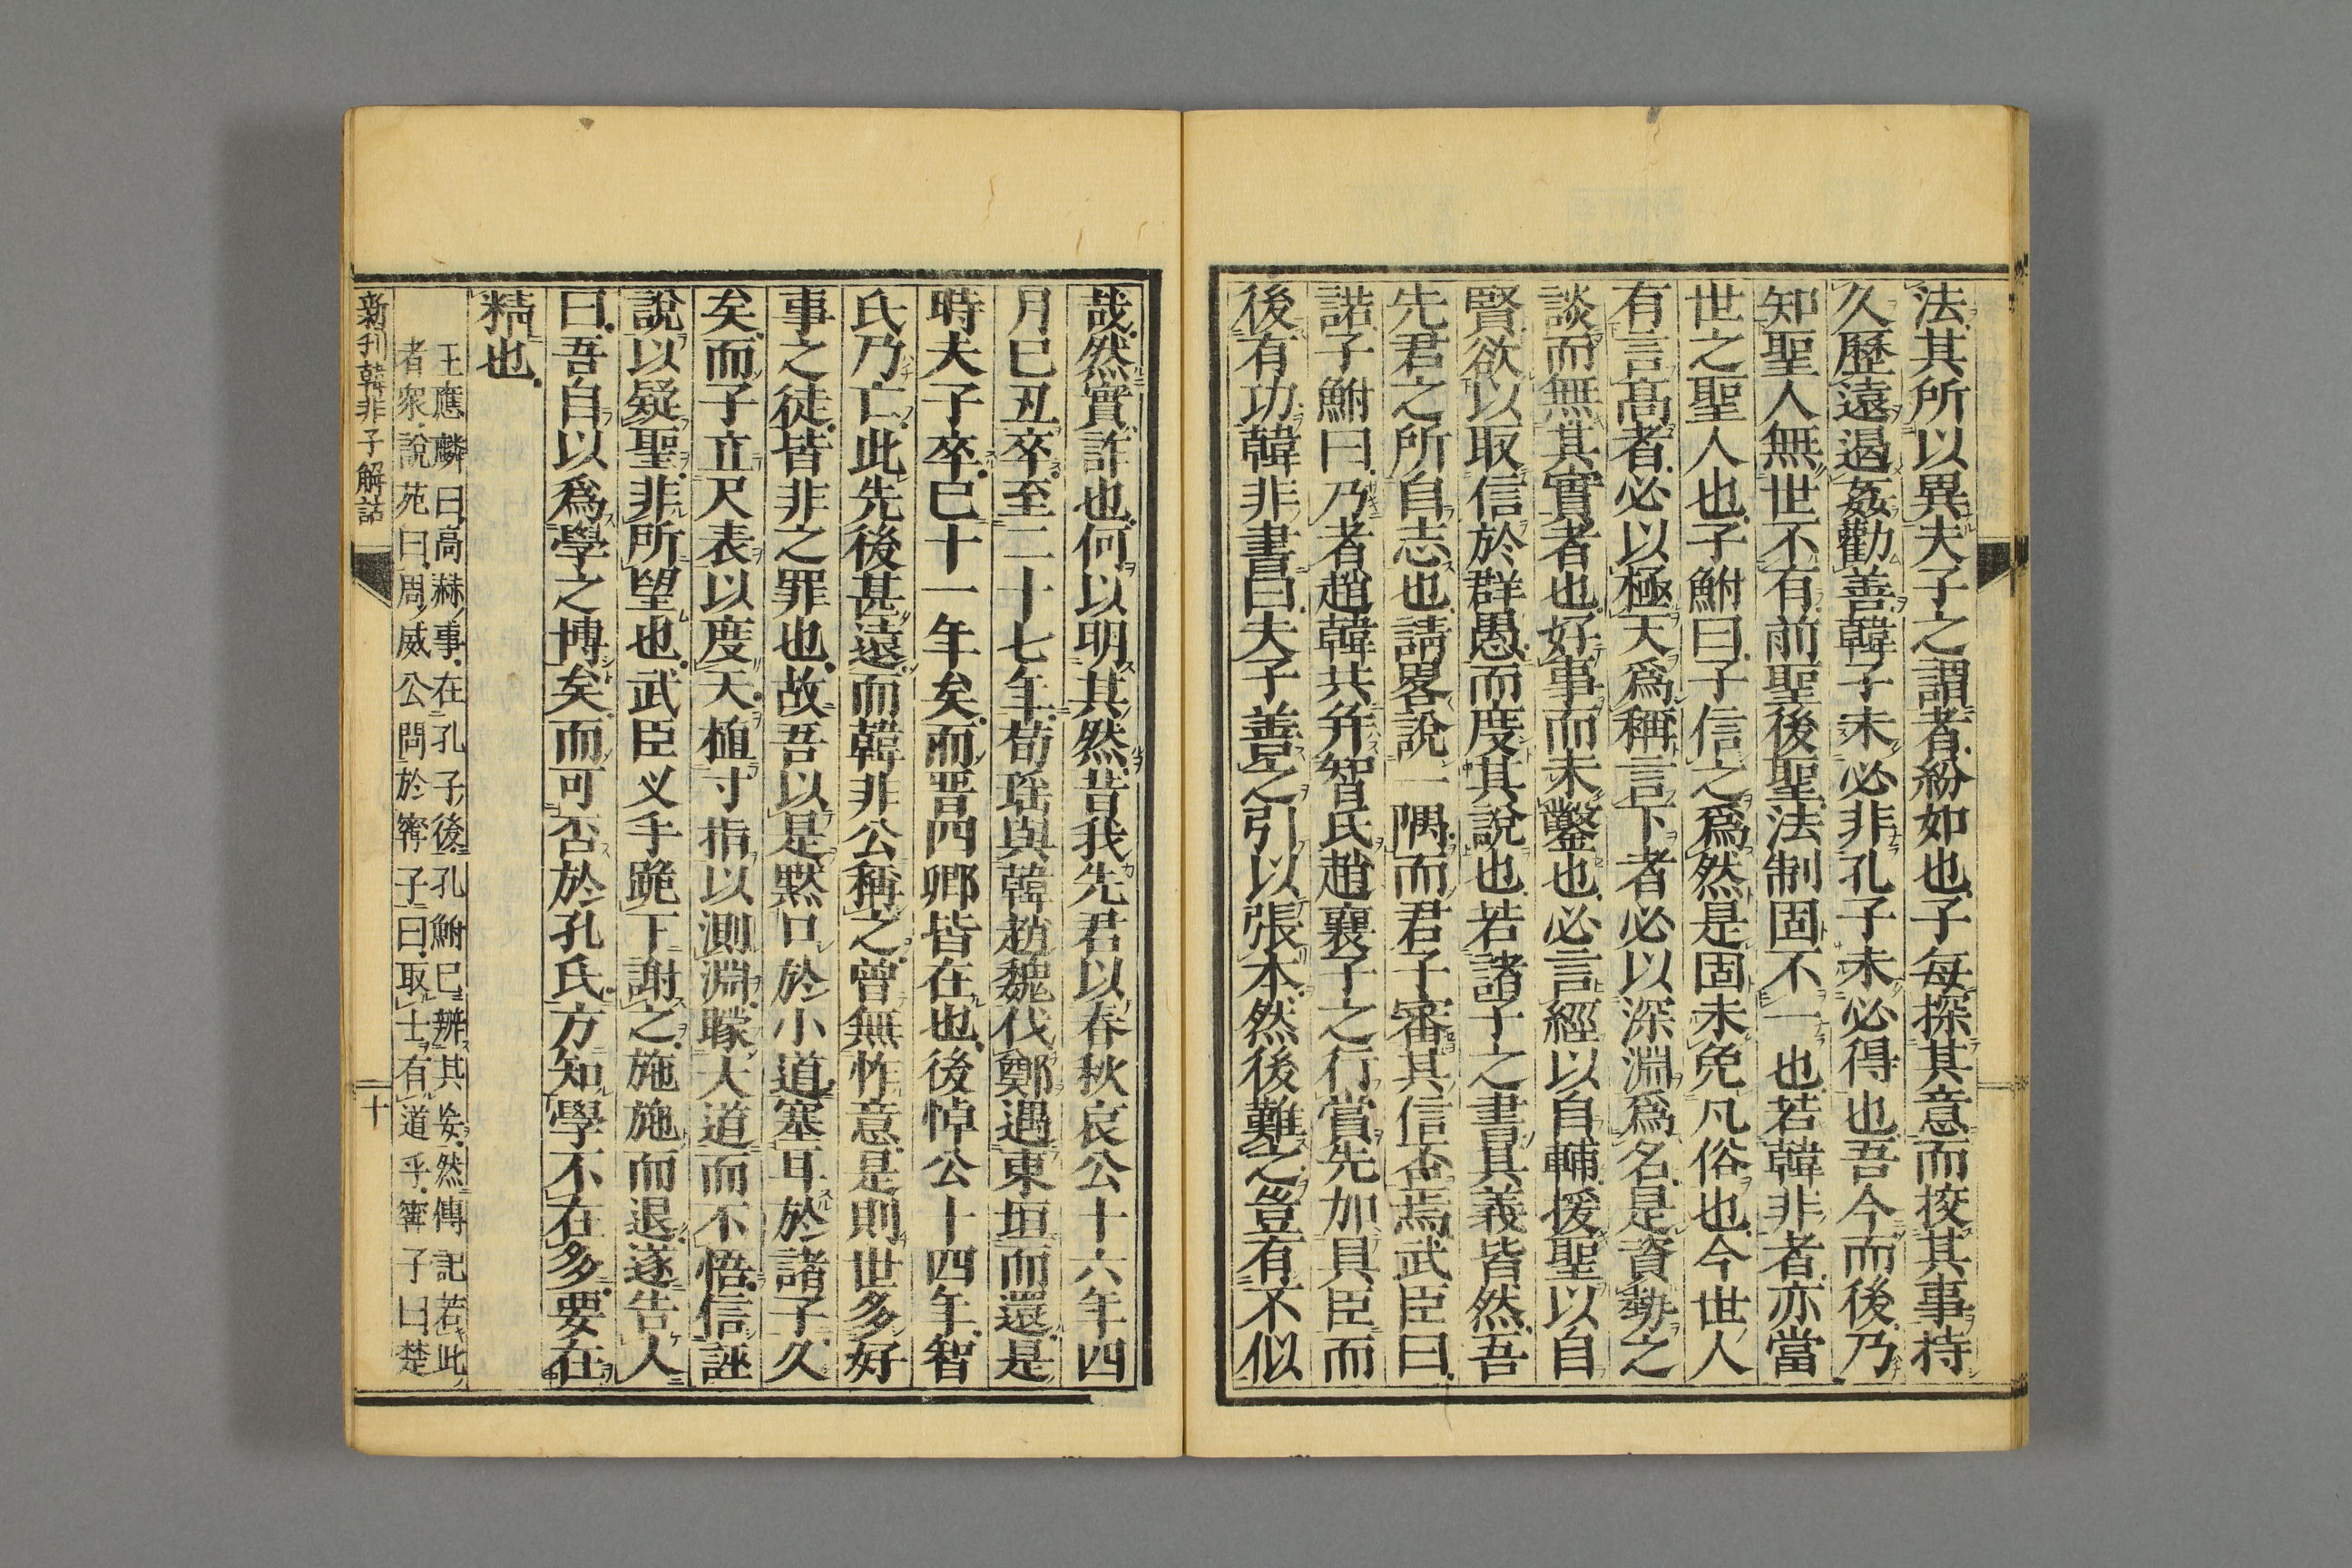 法其所以異夫子之謂者紛如也子每探其意而挍其事持
久歷遠遏姦勸善韓子未必非孔子未必得也吾今而後乃
知聖人無世不有前聖後聖法制固不一也若韓非者亦當
世之聖人也子鮒曰子信之爲然是固未免凡俗也今世人
有言髙者必以極天爲稱言下者必以深淵爲名是資勢之
談而無其實者也好事而未鑿也必言經以自輔援聖以自
賢欲以取信於群愚而度其說也若諸子之書其義皆然吾
先君之所自志也請畧說一隅而君子審其信否焉武臣曰
諾子鮒曰乃者趙韓共并智氏趙襄子之行賞先加具臣而
後有功韓非書曰夫子善之引以張本然後難之豈有不似
哉然實詐也何以明其然昔我先君以春秋哀公十六年四
月巳丑卒至二十七年荀瑶與韓趙魏伐鄭遇東垣而還是
時夫子卒巳十一年矣而晋四卿皆在也後悼公十四年智
氏乃亡此先後甚遠而韓非公稱之曾無怍意是則世多好
事之徒皆非之罪也故吾以是黙口於小道塞耳於諸子久
矣而子立尺表以度天植寸指以測淵矇大道而不悟信誣
說以疑聖非所望也武臣乂手跪下謝之施施而退遂告人
曰吾自以爲學之博矣而可否於孔氏方知學不在多要在
精也
王應麟曰高赫事在孔子後孔鮒巳辨其妄然傳記若此
者衆說苑曰周威公問於甯子曰取士有道乎甯子曰楚
新刊韓非子解詁
十